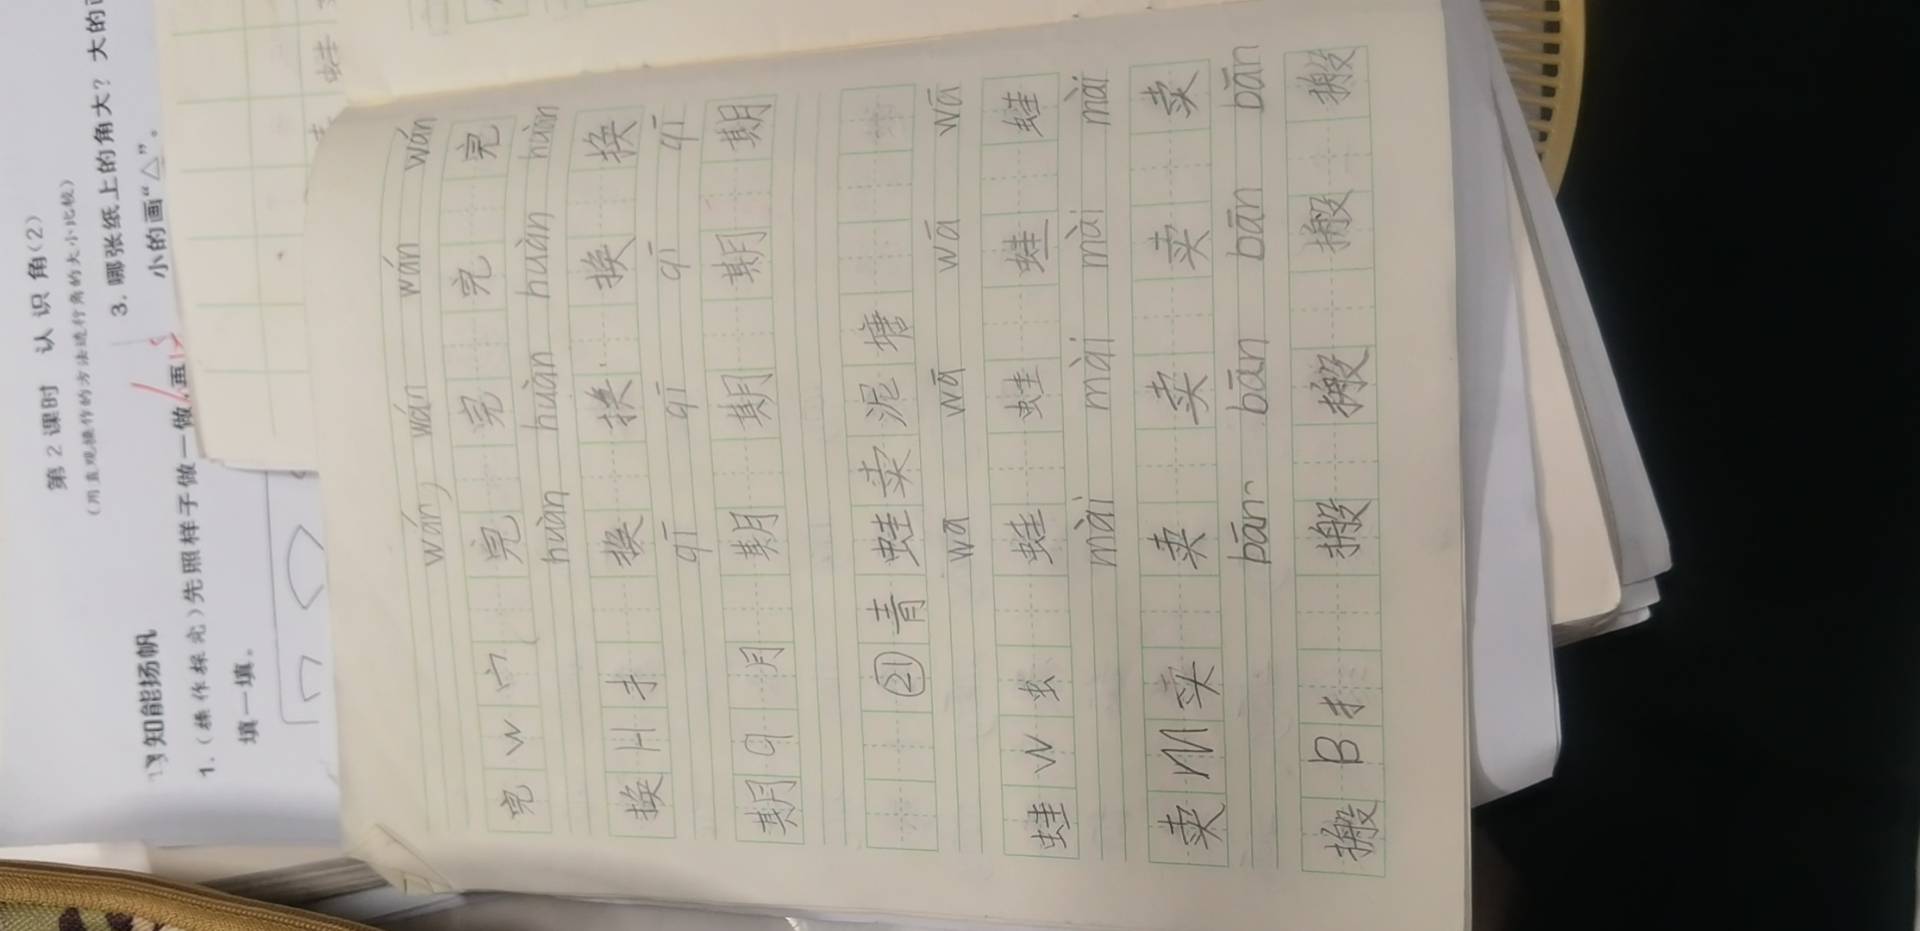 第2课时 认识角(2)
(用直观操作的方法进行角的大小比较)
知识能扬帆
1.(操作探究)先照样子做一做,再
填一填。
3. 哪张纸上的角大? 大的画
小的画“△”。
蛙
wán wán wán wán
完 W 宀 完 完 完 完
huàn huàn huàn huàn
换 H 扌 换 换 换 换
qī qī qī qī
期 q 月 期 期 期 期
㉑ 青 蛙 卖 泥 塘
wā wā wā wā
蛙 W 虫 蛙 蛙 蛙 蛙
mài mài mài mài
卖 M 卖 卖 卖 卖 卖
bān bān bān bān
搬 B 扌 搬 搬 搬 搬